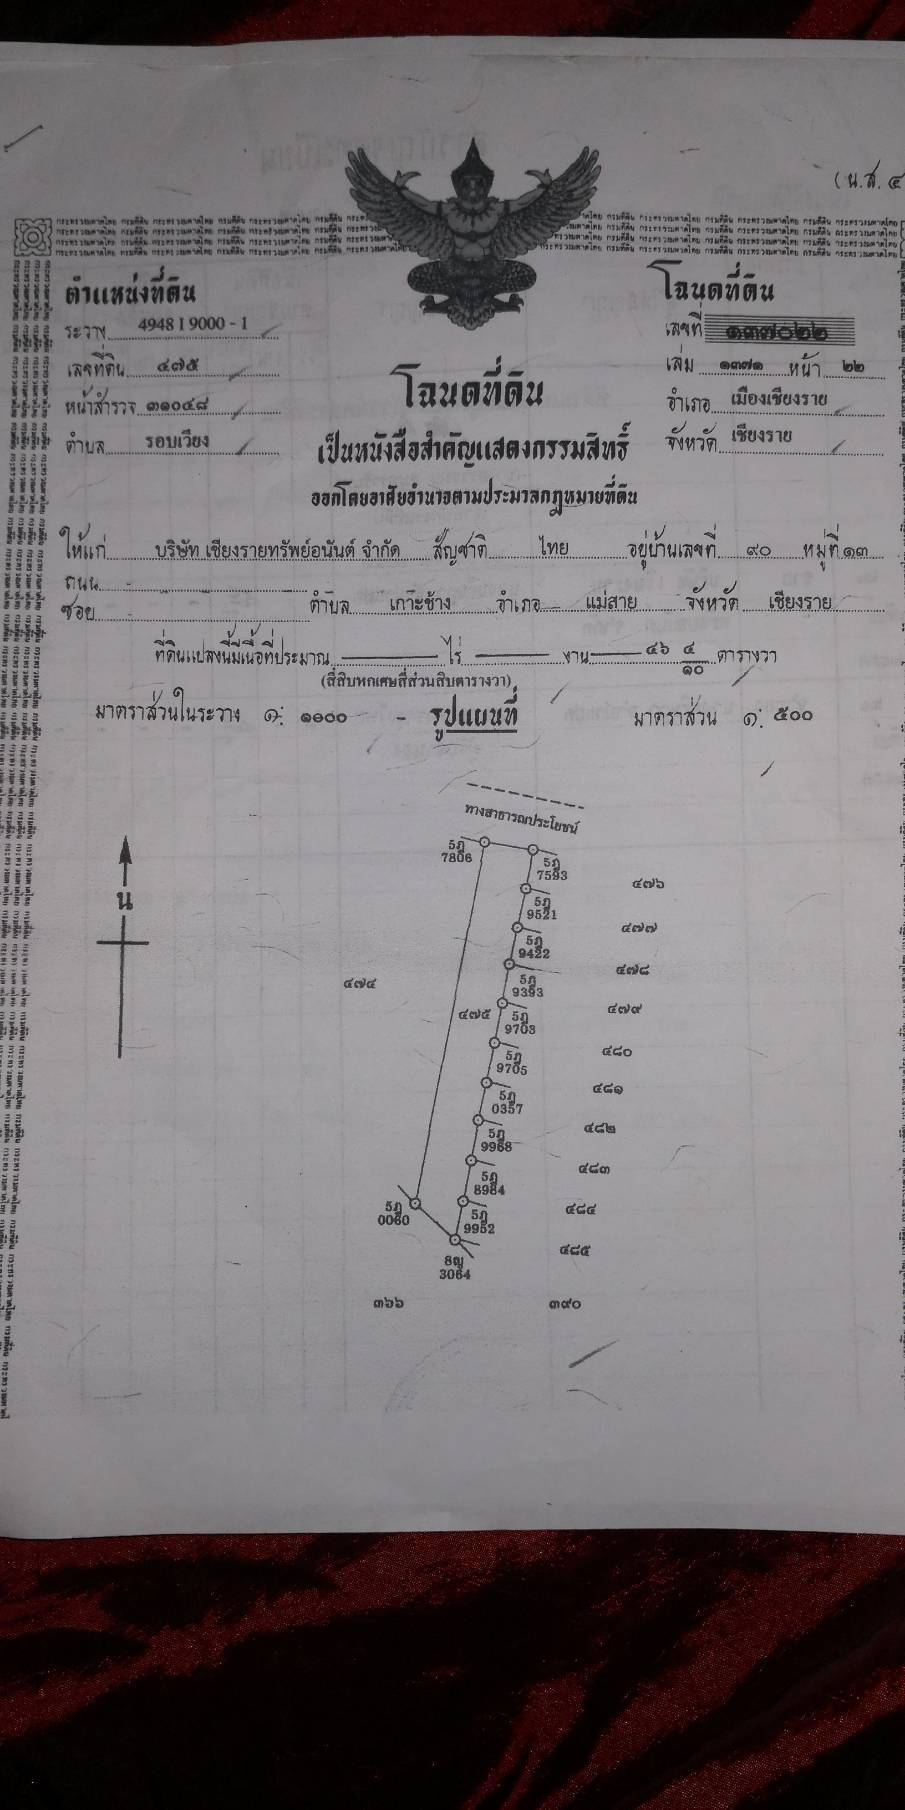 (น.ส. ๔
ตำแหน่งที่ดิน
ระวาง 4948 I 9000 - 1
เลขที่ดิน ๔๗๕
หน้าสำรวจ ๓๑๐๔๘
ตำบล รอบเวียง
โฉนดที่ดิน
เลขที่ ๑๓๗๐๒๒
เล่ม ๑๓๗๑ หน้า ๒๒
อำเภอ เมืองเชียงราย
จังหวัด เชียงราย
โฉนดที่ดิน
เป็นหนังสือสำคัญแสดงกรรมสิทธิ์
ออกโดยอาศัยอำนาจตามประมวลกฎหมายที่ดิน
ให้แก่ บริษัท เชียงรายทรัพย์อนันต์ จำกัด สัญชาติ ไทย อยู่บ้านเลขที่ ๙๐ หมู่ที่ ๑๓
ถนน -
ซอย - ตำบล เกาะช้าง อำเภอ แม่สาย จังหวัด เชียงราย
ที่ดินแปลงนี้มีเนื้อที่ประมาณ — ไร่ — งาน — ๔๖ ๔/๑๐ ตารางวา
(สี่สิบหกเศษสี่ส่วนสิบตารางวา)
มาตราส่วนในระวาง ๑: ๑๐๐๐ - รูปแผนที่ มาตราส่วน ๑: ๕๐๐
ทางสาธารณประโยชน์
5ฎ
7806
5ฎ
7593
๔๗๖
น
5ฎ
9521
๔๗๗
5ฎ
9422
๔๗๘
๔๗๔
5ฎ
9393
๔๗๙
๔๗๕
5ฎ
9703
๔๘๐
5ฎ
9705
๔๘๑
5ฎ
0357
๔๘๒
5ฎ
9968
๔๘๓
5ฎ
8984
๔๘๔
5ฎ
0060
5ฎ
9952
๔๘๕
8ญ
3064
๓๖๖
๓๙๐